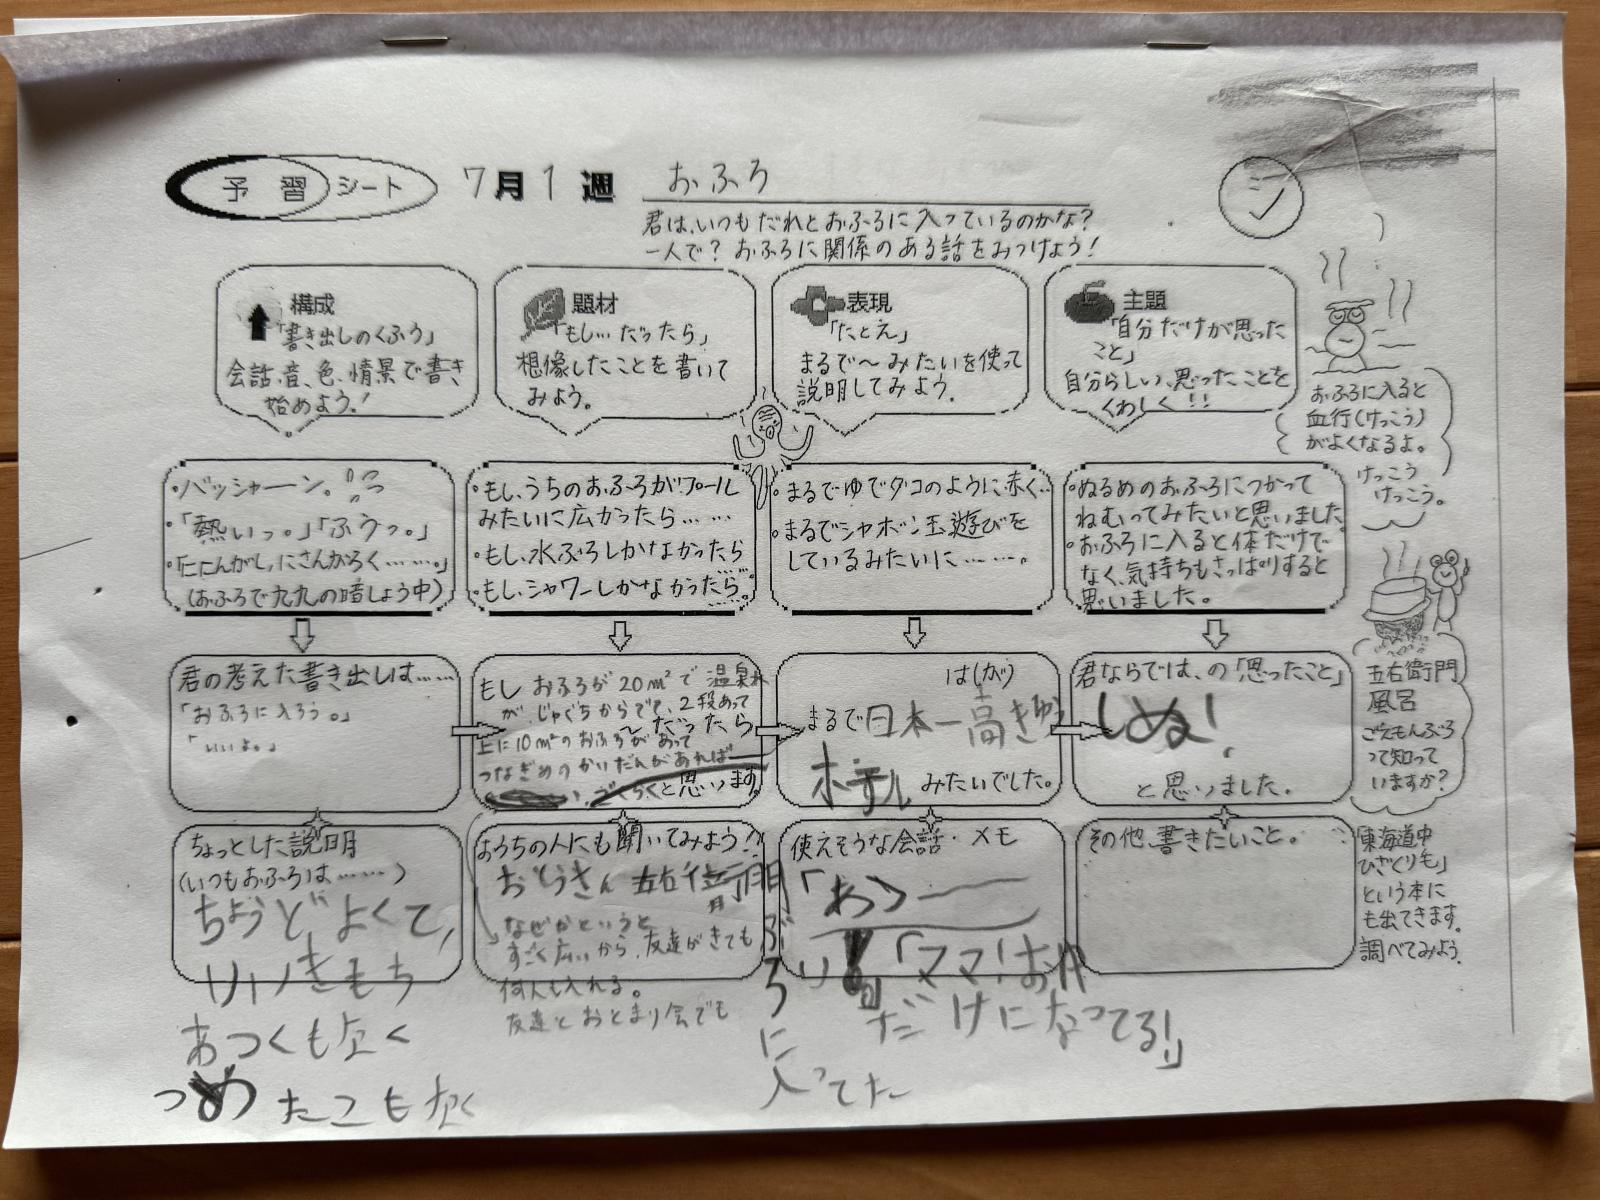 予習シート 7月1週 おふろ
君は、いつもだれとおふろに入っているのかな？
一人で？おふろに関係のある話をみつけよう！
構成
「書き出しのくふう」
会話、音、色、情景で書き
始めよう！
題材
「もし…だったら」
想像したことを書いて
みよう。
表現
「たとえ」
まるで〜みたいを使って
説明してみよう。
主題
「自分だけが思った
こと」
自分らしい、思ったことを
くわしく！！
おふろに入ると
血行（けっこう）
がよくなるよ。
けっこう
けっこう。
・バッシャーン。
・「熱いっ。」「ふうっ。」
・「ににんがし、にさんがろく……。」
（おふろで九九の暗しょう中）
・もし、うちのおふろがプール
みたいに広かったら……
・もし、水ぶろしかなかったら
・もし、シャワーしかなかったら……
・まるでゆでダコのように赤く…
・まるでシャボン玉遊びを
しているみたいに……。
・ぬるめのおふろにつかって
ねむってみたいと思いました。
・おふろに入ると体だけで
なく、気持ちもさっぱりすると
思いました。
君の考えた書き出しは……
「おふろに入ろう。」
「いいよ。」
もし おふろが20m²で温泉水
が、じゃぐちからでて、2段あって
〜だったら
上に10m²のおふろがあって
つなぎめのかいだんがあれば
ごくらくと思います。
はし(が)
まるで日本一高き
ホテル みたいでした。
君ならでは、の「思ったこと」
しぬ！
と思いました。
五右衛門
風呂
ごえもんぶろ
って知って
いますか？
ちょっとした説明
（いつもおふろは……）
ちょうどよくて,
いいきもち
あつくもなく
つめたこもなく
おうちの人にも聞いてみよう？
おとうさん 五右衛門
ぶろに入ってた
なぜかというと
すごく広いから、友達がきても
何人も入れる。
友達とおとまり会でも
使えそうな会話・メモ
「あつ――
い！」「ママ！お
だけになってる！」
その他、書きたいこと。
「東海道中
ひざくり毛」
という本に
も出てきます。
調べてみよう。